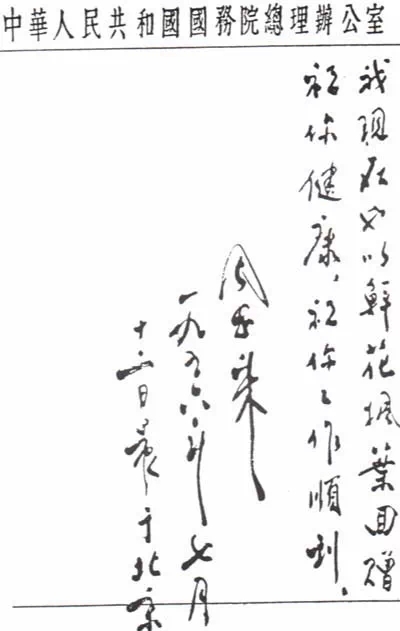 中華人民共和國國務院總理辦公室
我現在也以鮮花枫葉回贈
祝你健康，祝你工作順利。
周恩来
一九五六年七月
十二日晨于北京